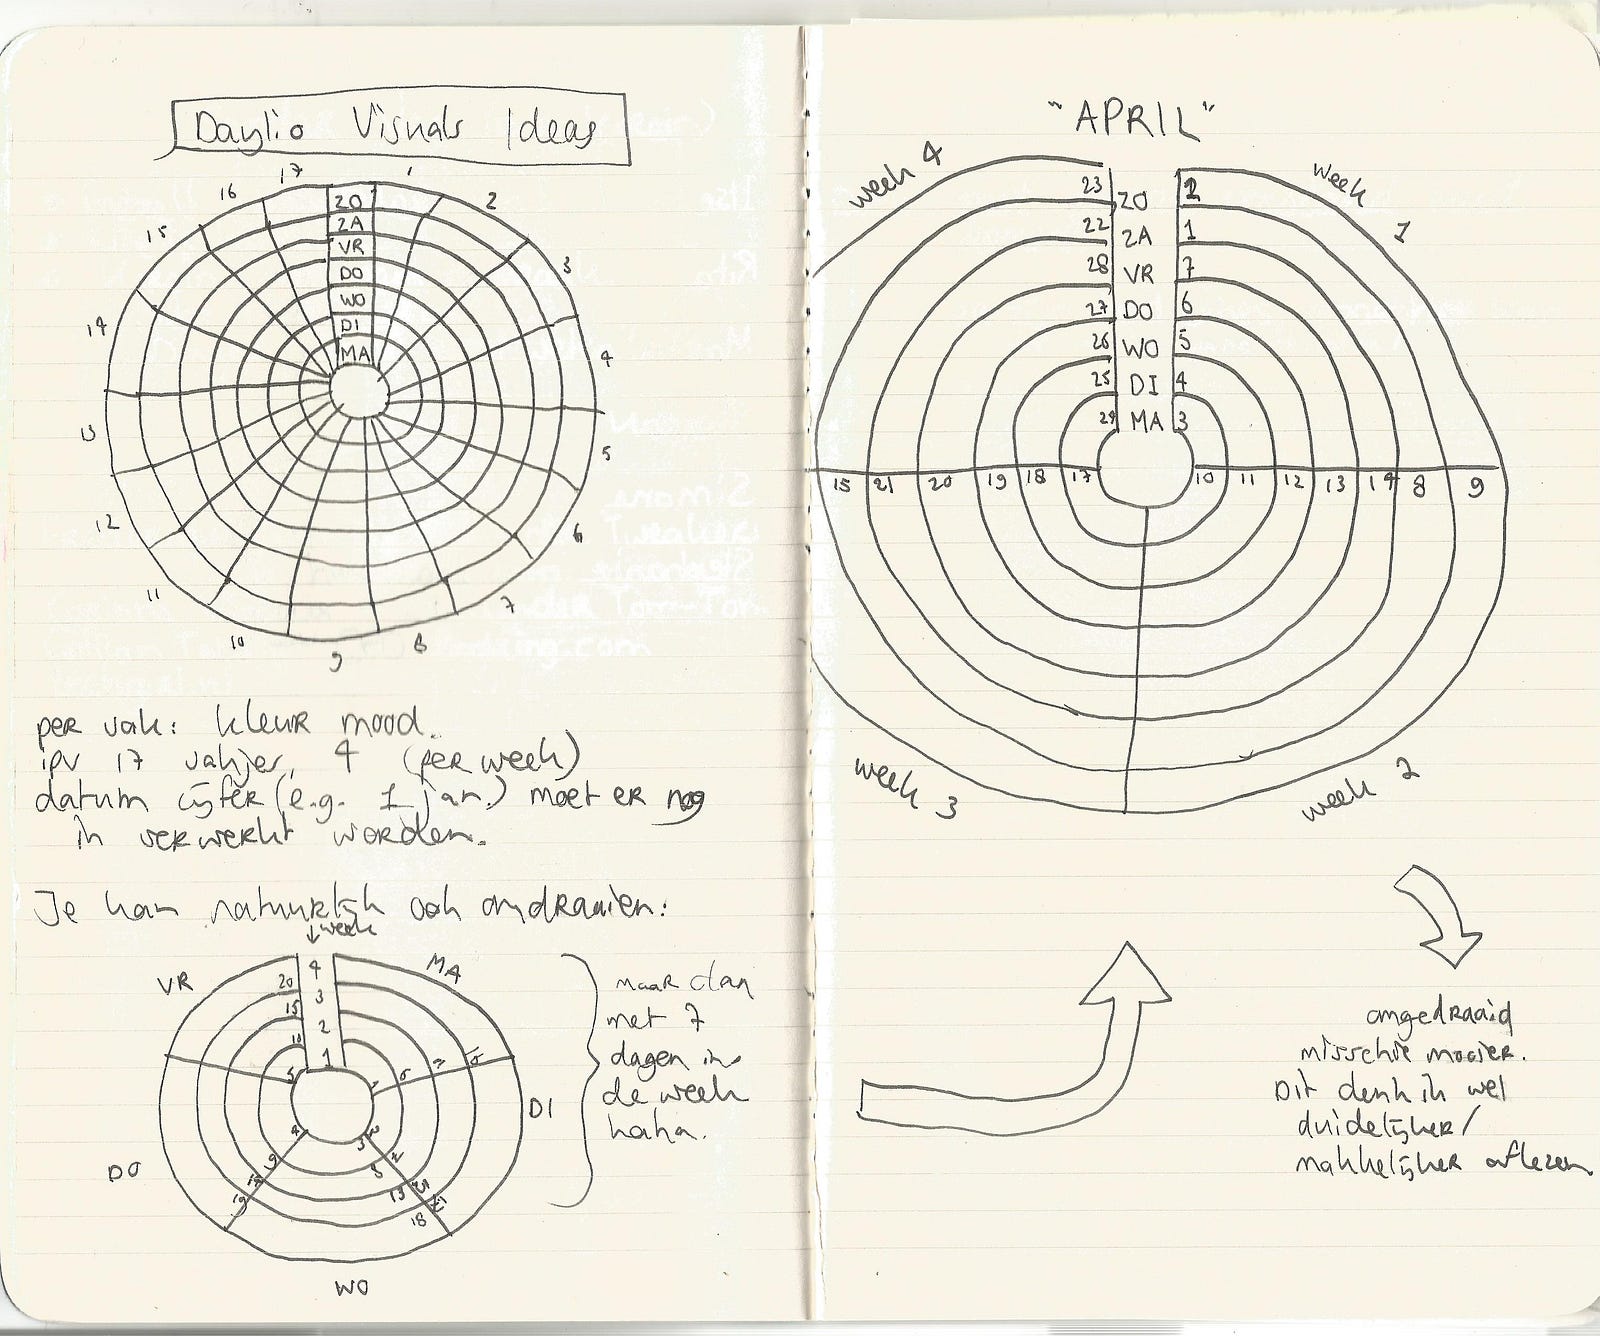 Daylio Visuals Ideas
17 1
16 2
15 3
14 4
13 5
12 6
11 7
10 9 8
ZO
ZA
VR
DO
WO
DI
MA
per vak: kleur mood.
ipv 17 vakjes, 4 (per week)
datum cijfer (e.g. 1 jan.) moet er nog
in verwerkt worden.
Je kan natuurlijk ook omdraaien:
↓ week
VR MA
20 4
15 3
10 2
5 1
DI
DO
WO
1 6 11
4 9 14 19
3 8 13 18
maar dan
met 7
dagen in
de week
haha.
"APRIL"
week 4 week 1
23 ZO 2
22 ZA 1
28 VR 7
27 DO 6
26 WO 5
25 DI 4
24 MA 3
15 21 20 19 18 17 10 11 12 13 14 8 9
week 3 week 2
omgedraaid
misschie mooier.
Dit denk ik wel
duidelijker/
makkelijker aflezen